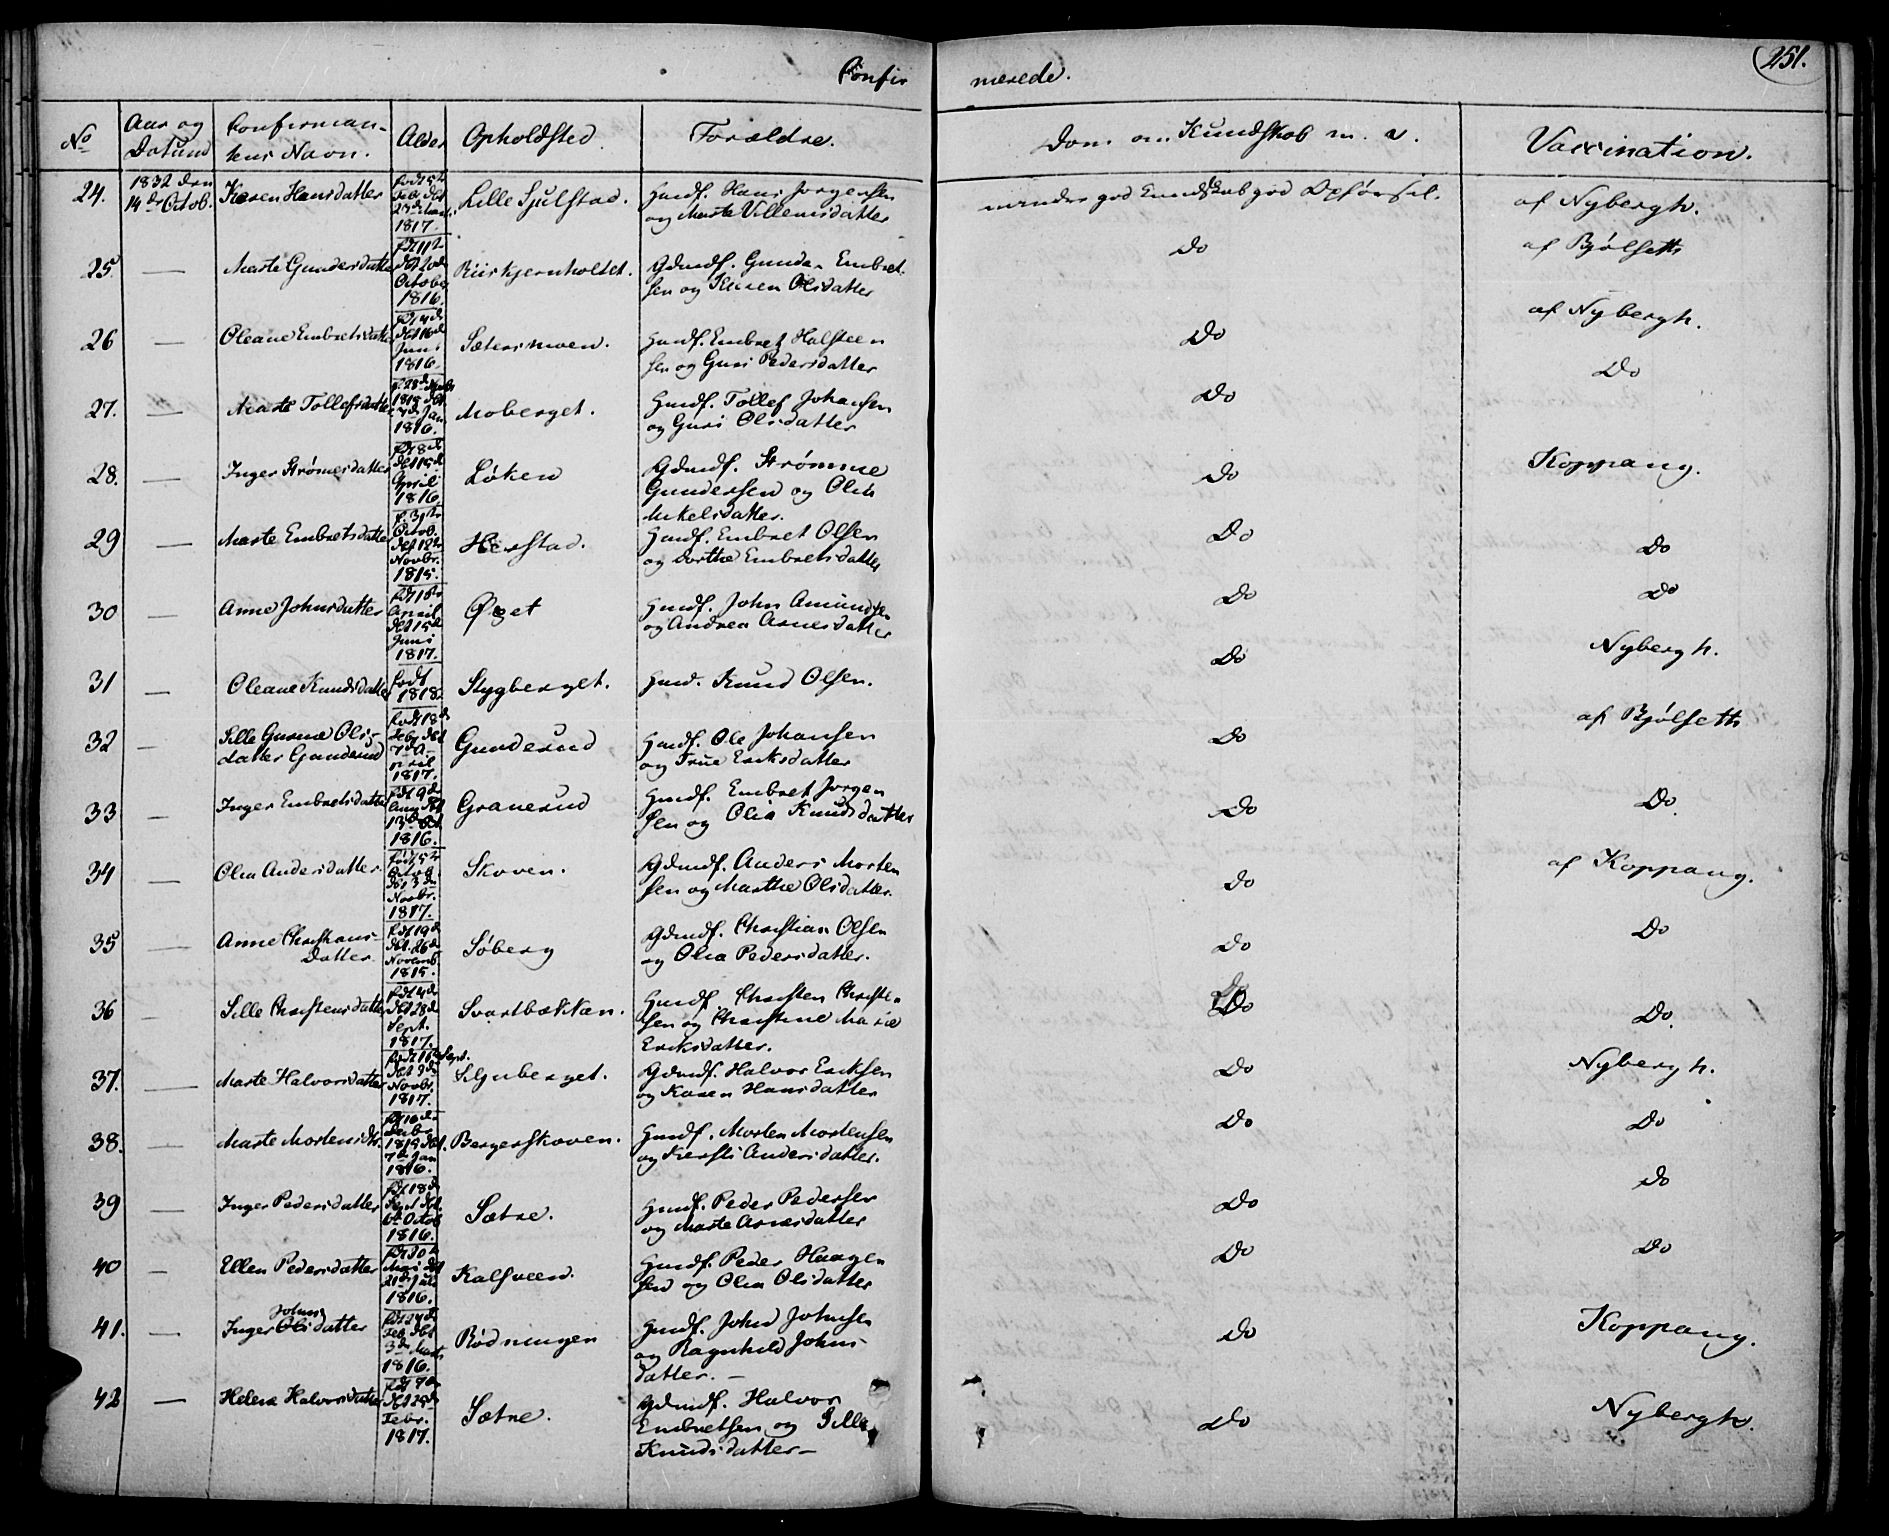 Confir merede. 251.
No Aar og Datum Confirman- Alder Opholdsted. Forældre. Dom om Kundskab m. v. Vaccination.
tens Navn.
24. 1832 den 14de Octob. Karen Hansdatter født 5te Feb. dbt 1817. Lille Sjulstad. Huusmf. Hans Jørgensen
og Marte Villemsdatter god Kundskab god Opførsel. af Nybergh.
25 — Marte Gundersdatter fdt 11te dbt 20de October 1816. Gdmdf. Gunder Embret-
sen og Karen Olsdatter Do af Bjølseth
26 — Oleane Embretsdatter fdt 4de dbt 16de Juni 1816. Sætersmoen. Huusmf. Embret Halsteen
sen og Guri Pedersdatter Do af Nybergh.
27. — Marte Tollefsdatter f. 28de dbt 7de Jan 1816. Moberget. Huusmf. Tollef Johansen
og Guri Olsdatter Do Do
28. — Inger Strømsdatter fdt 8de dbt 15de April 1816. Løken Gdmdf. Strømme
Gundersen og Olea
Mikelsdatter. Do Koppang.
29 — Marte Embretsdatter f. 31te Octob. dbt 12te Novbr. 1815. Herstad. Huusmf. Embret Olsen
og Dorthe Embretsdatter Do Do
30 — Anne Johnsdatter fdt 18te April dbt 15de Juni 1817. Øget Huusmf. John Amundsen
og Andrea Arnesdatter Do Do
31 — Oleane Knudsdatter født 1818. Stygberget. Knud Olsen. Do Nybergh.
32 — Sille Gurine Ols-
datter Gunderud født 18de Feb. dbt 7de April 1817. Gunderud Huusmf. Ole Johansen
og Trine Eriksdatter Do af Bjølseth
33 — Inger Embretsdatter fdt 9de dbt 13de 1816. Granerud Huusmf. Embret Jørgen
sen og Olia Knudsdatter Do Do
34 — Olea Andersdatter. født 5te Octob. db. 3de Novbr. 1817. Skoven. Gdmdf. Anders Morten
sen og Marthe Olsdatter. Do af Koppang.
35 — Anne Christians-
Datter. fdt 19de dbt. 26de Novemb. 1815. Søberg Gdmdf. Christian Olsen
og Olea Pedersdatter. Do Do
36 — Sille Christensdatter fdt 4de dbt 28de Sept. 1817. Svartbækken. Huusmf. Christen Christen
sen og Christine Marie
Eriksdatter. Do Do
37. — Marte Halvorsdatter født 16de Sept. dbt 9de Novbr. 1817. Gdmdf. Halvor Eriksen
og Karen Hansdatter Do Nybergh.
38. — Marte Mortensdtr. fdt 10de Decbr 1815 dbt. 7de Jan 1816. Bergerskoven. Huusmf. Morten Mortensen
og Kersti Andersdatter. Do Do
39 — Inger Pedersdatter fdt 18de Sept dbt. 6te Octob 1816. Sætre. Huusmf. Peder Pedersen
og Marte Arnesdatter Do Do
40 — Ellen Pedersdatter fdt 30te Mai dbt 21de Juli 1816. Kalsveen. Huusmf. Peder Haagen
sen og Olea Olsdatter Do Do
41. — Inger Johns Olsdatter fdt 24de Feb. dbt 3de Marts 1816. Rødningen Huusmf. John Johnsen
og Ragnhild Johns-
datter. — Do Koppang.
42 — Helene Halvorsdatter fdt 9de Febr. 1817. Sætre. Gdmdf. Halvor
Embretsen og Sille
Knudsdatter — Do Nybergh.